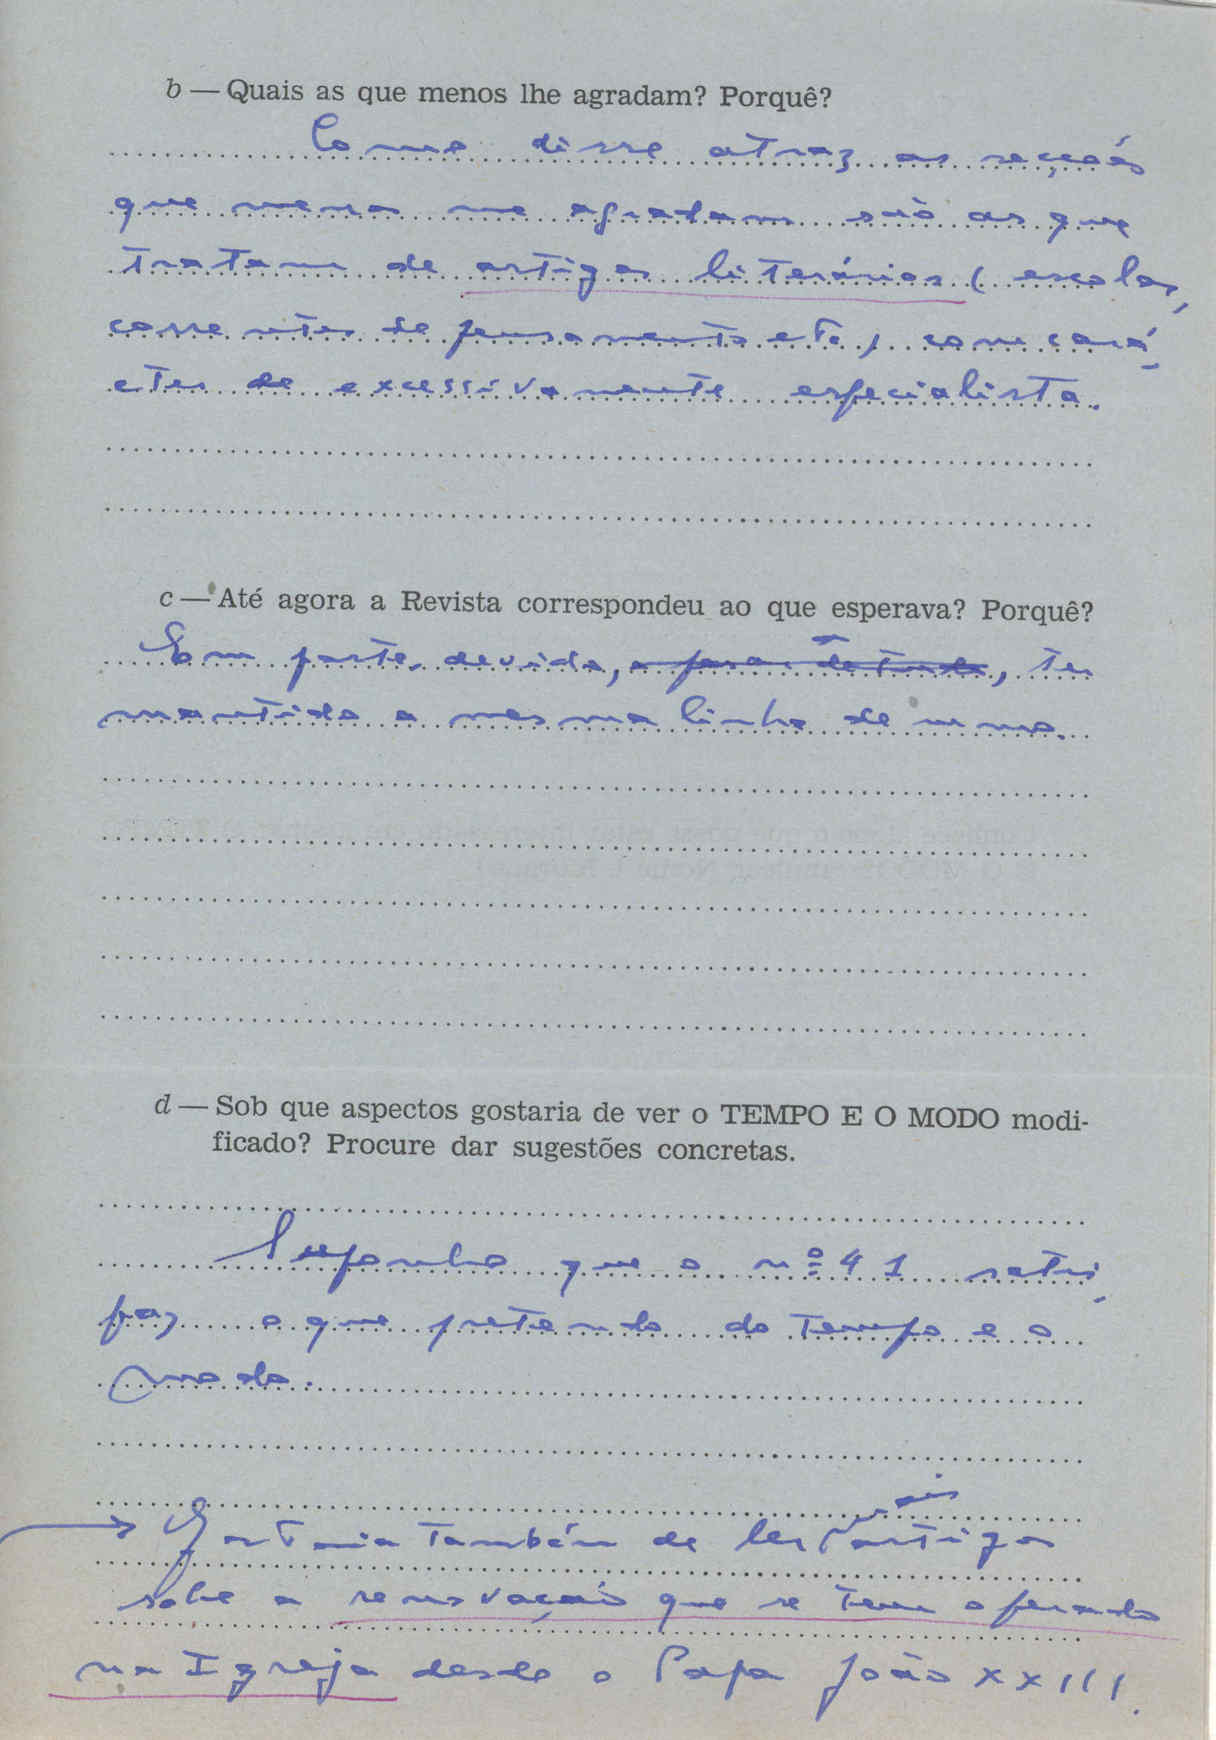 b — Quais as que menos lhe agradam? Porquê?
Como disse atraz as secções
que menos me agradam são as que
tratam de artigos literários (escolas,
correntes de pensamento etc) com cará-
cter de excessivamente especialista.
c — Até agora a Revista correspondeu ao que esperava? Porquê?
Em parte, devido, , ter
mantido a mesma linha de rumo.
d — Sob que aspectos gostaria de ver o TEMPO E O MODO modi-
ficado? Procure dar sugestões concretas.
Suponho que o nº 41 satis-
faz o que pretendo do Tempo e o
Modo.
mais
→ Gostaria também de ler artigos
sobre a renovação que se tem operado
na Igreja desde o Papa João XXIII.